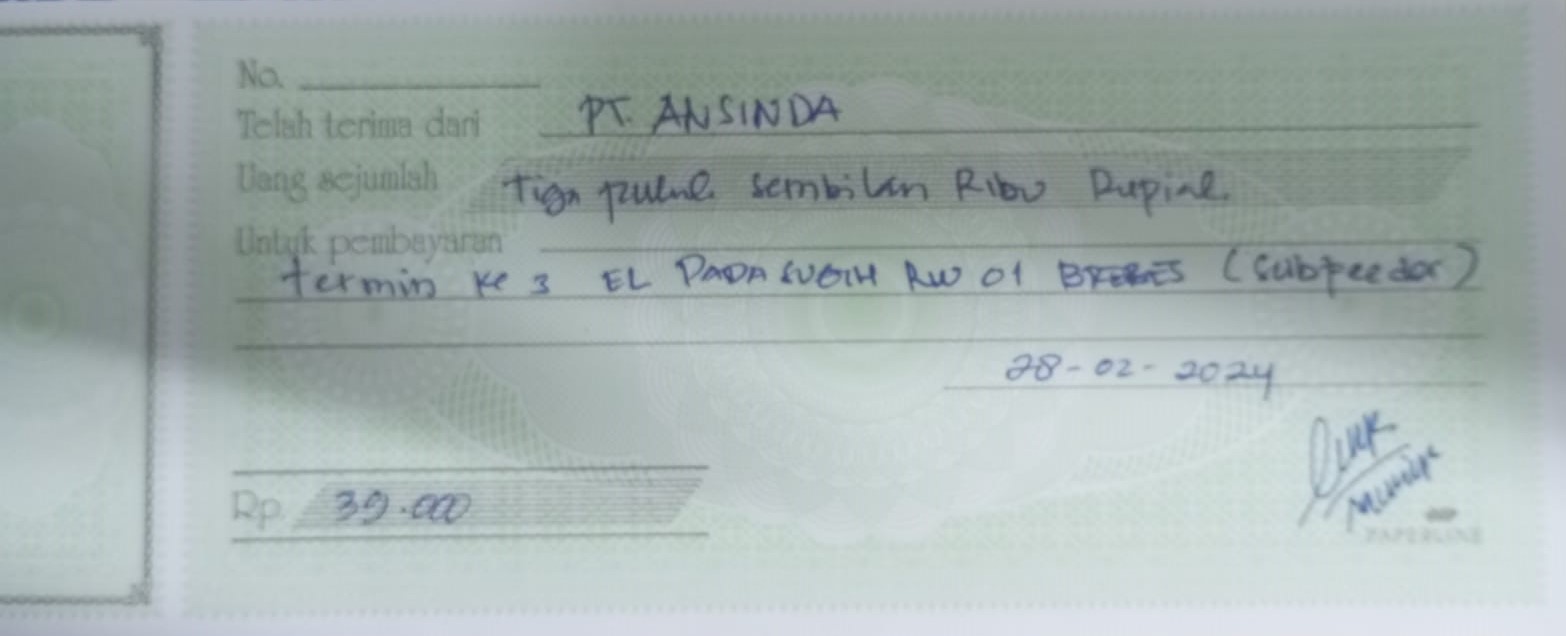 No.
Telah terima dari PT. ANSINDA
Uang sejumlah Tiga puluh sembilan Ribu Rupiah
Untuk pembayaran
termin ke 3 EL PADASUGIH RW 01 BREBES (Subfeeder)
28-02-2024
Rp. 39.000
PAPERLINE